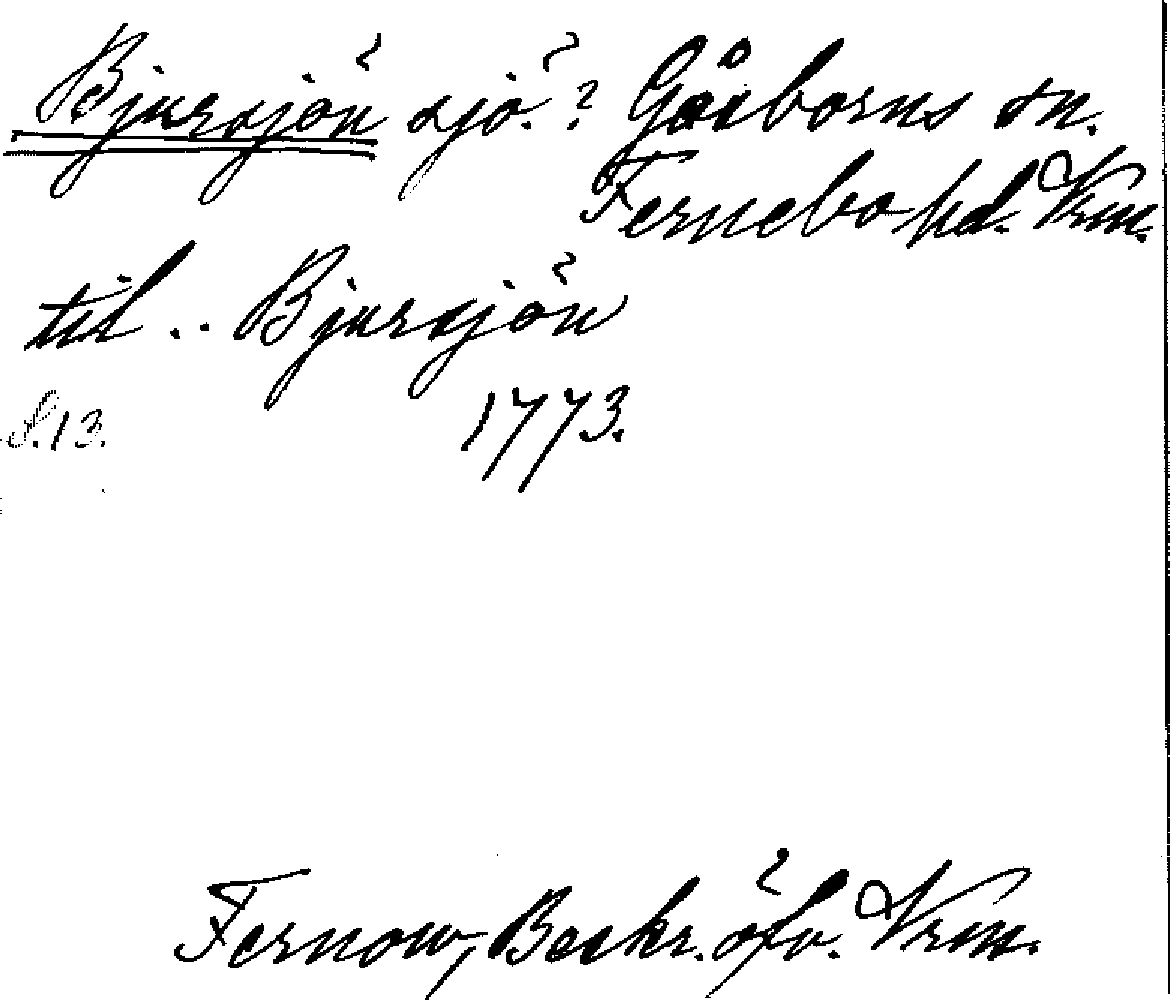 Bjursjön sjö.? Gåsborns sn.
Fernebo hd. Vrm.
til .. Bjursjön
S. 13. 1773.
Fernow, Beskr. öfv. Vrm.